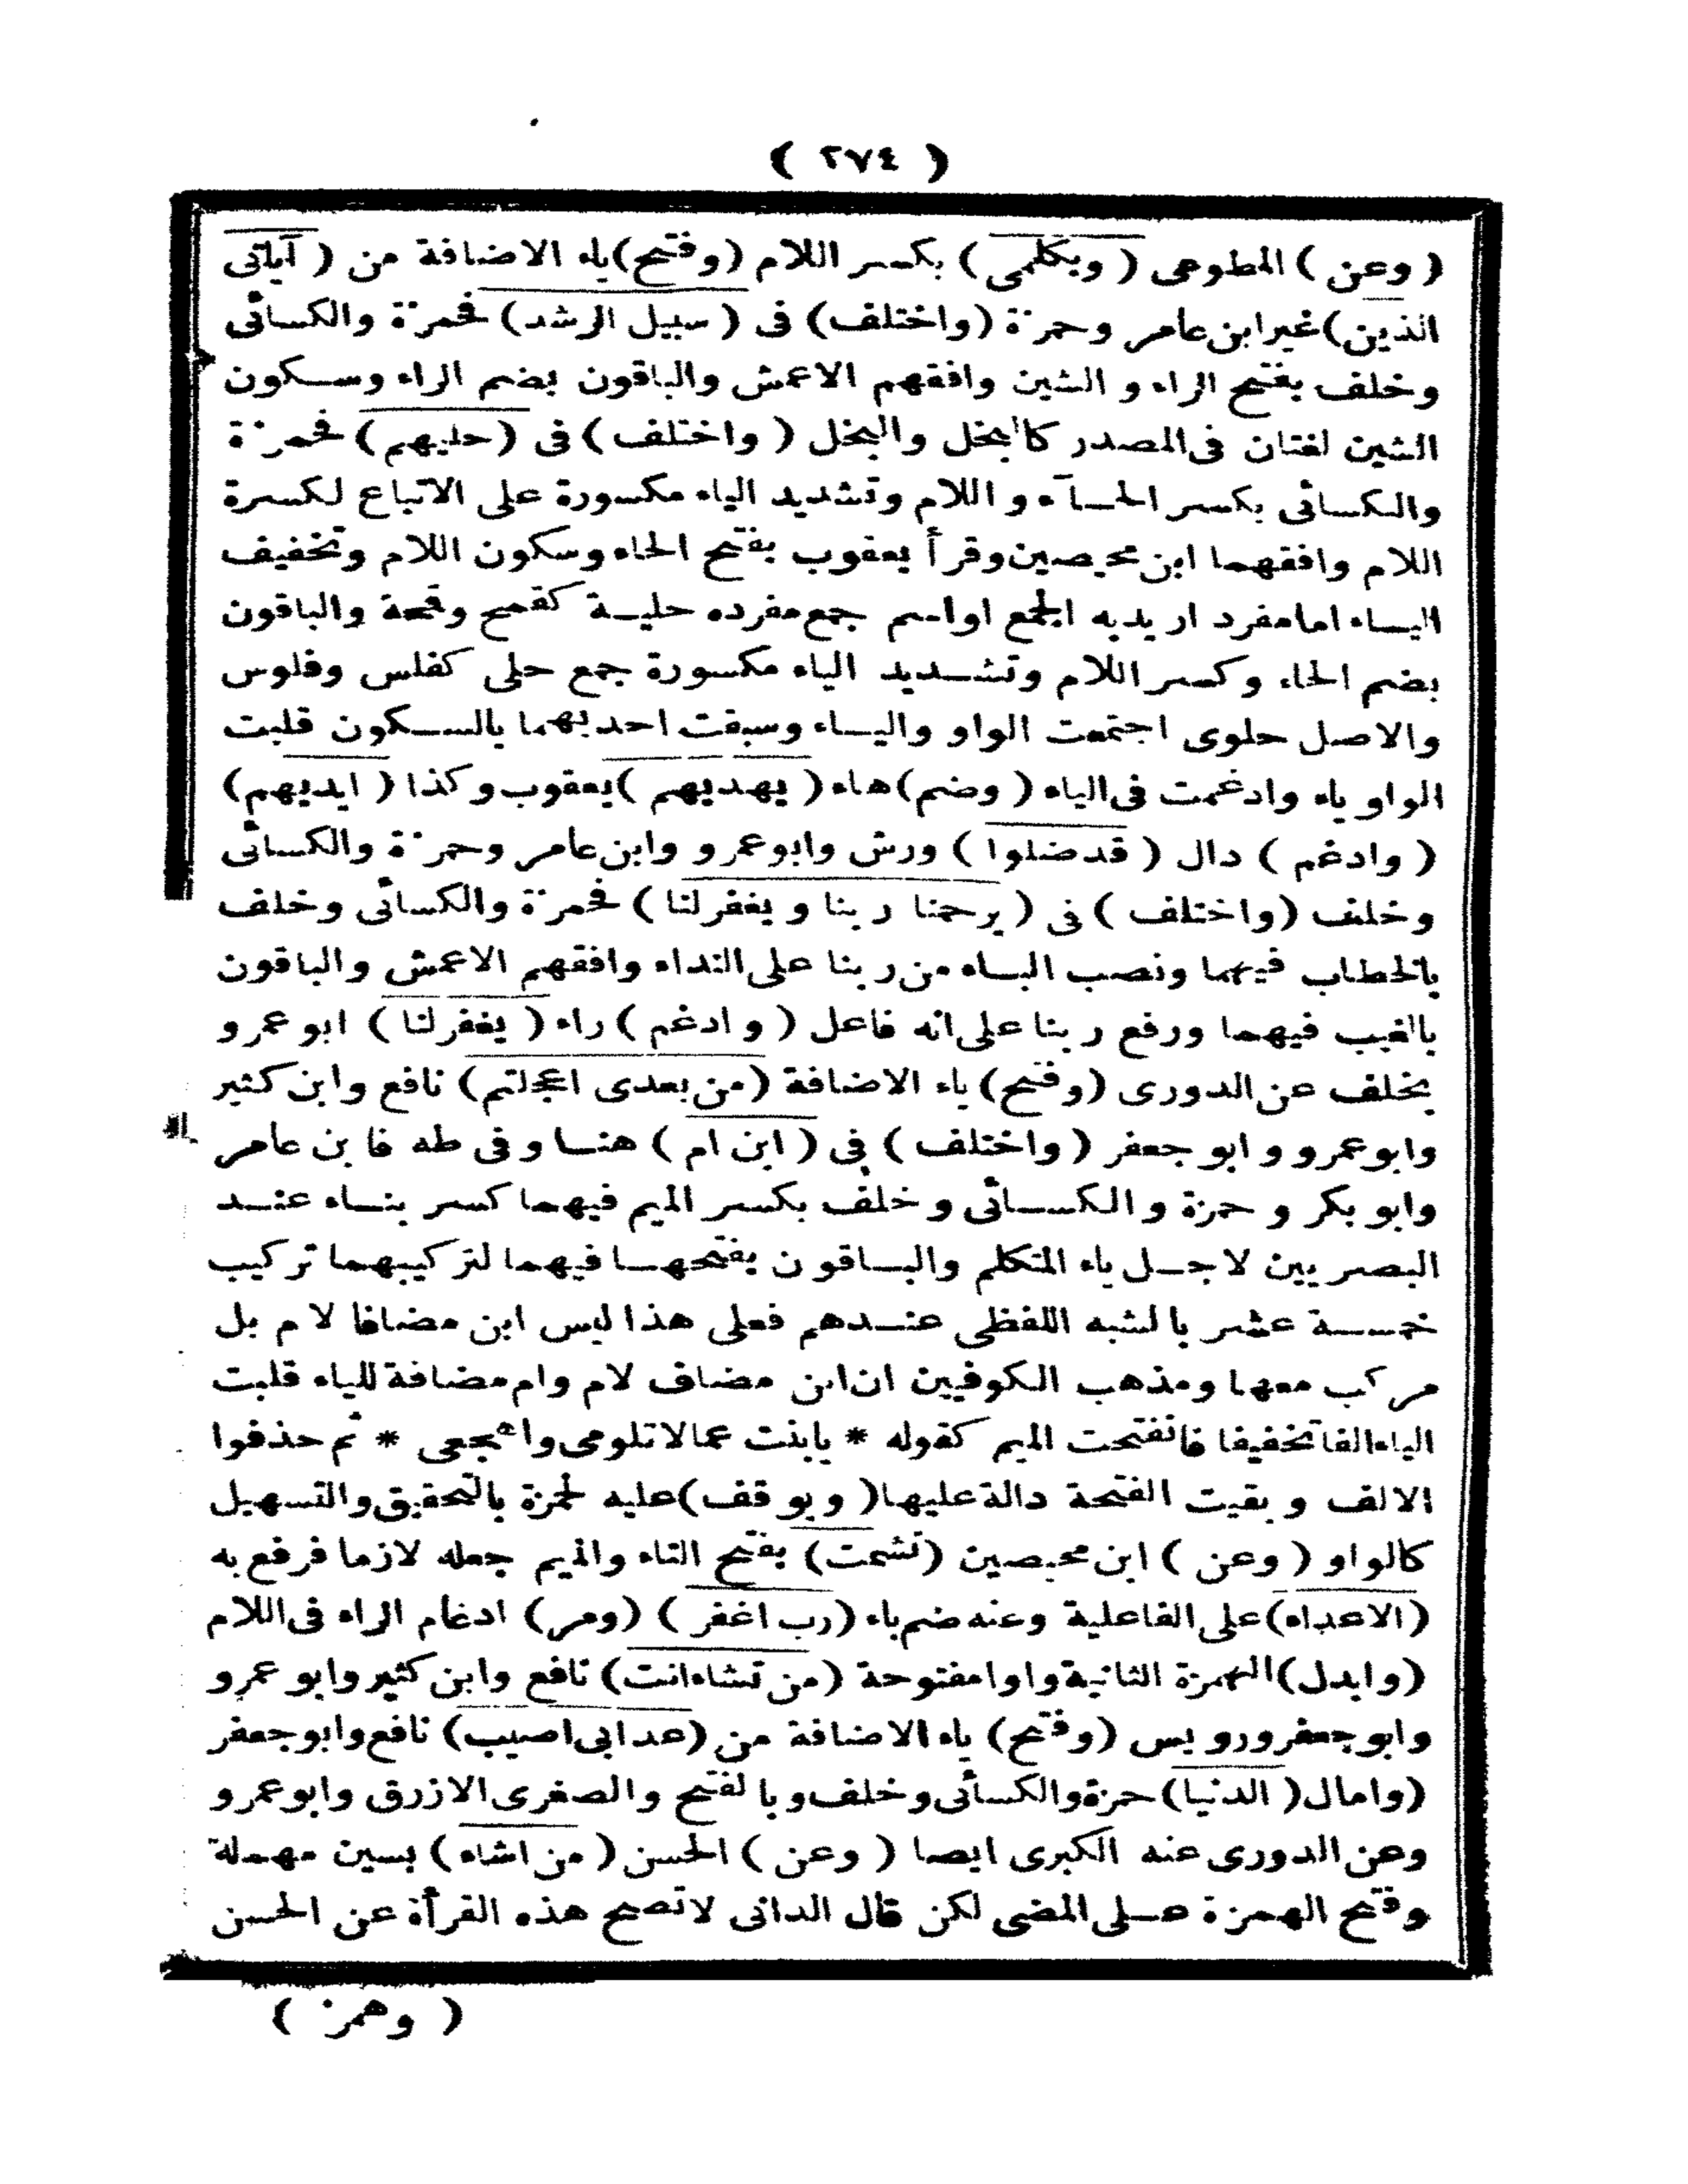 ( ٢٧٤ )
( وعن ) المطوعى ( وبكلمى ) بكسر اللام ( وفتح ) ياء الاضافة من ( آياتى
الذين ) غير ابن عامر وحمزة ( واختلف ) فى ( سبيل الرشد ) فحمزة والكسائى
وخلف بفتح الراء و الشين وافقهم الاعمش والباقون بضم الراء وسكون
الشين لغتان فى المصدر كالبخل والبخل ( واختلف ) فى ( حليهم ) فحمزة
والكسائى بكسر الحاء و اللام وتشديد الياء مكسورة على الاتباع لكسرة
اللام وافقهما ابن محيصين وقرأ يعقوب بفتح الحاء وسكون اللام وتخفيف
الياء اما مفرد اريد به الجمع او اسم جمع مفرده حلية كقمح وقمحة والباقون
بضم الحاء وكسر اللام وتشديد الياء مكسورة جمع حلى كفلس وفلوس
والاصل حلوى اجتمعت الواو والياء وسبقت احديهما بالسكون قلبت
الواو ياء وادغمت فى الياء ( وضم ) هاء ( يهديهم ) يعقوب وكذا ( ايديهم )
( وادغم ) دال ( قد ضلوا ) ورش وابو عمرو وابن عامر وحمزة والكسائى
وخلف ( واختلف ) فى ( يرحمنا ربنا و يغفر لنا ) فحمزة والكسائى وخلف
بالخطاب فيهما ونصب الباء من ربنا على النداء وافقهم الاعمش والباقون
بالغيب فيهما ورفع ربنا على انه فاعل ( و ادغم ) راء ( يغفر لنا ) ابو عمرو
بخلف عن الدورى ( وفتح ) ياء الاضافة ( من بعدى اعجلتم ) نافع وابن كثير
وابو عمرو و ابو جعفر ( واختلف ) فى ( ابن ام ) هنا و فى طه فابن عامر
وابو بكر و حمزة و الكسائى و خلف بكسر الميم فيهما كسر بناء عند
البصريين لاجل ياء المتكلم والباقون بفتحها فيهما لتركيبهما تركيب
خمسة عشر بالشبه اللفظى عندهم فعلى هذا ليس ابن مضافا لام بل
مركب معها ومذهب الكوفيين ان ابن مضاف لام وام مضافة للياء قلبت
الياء الفا تخفيفا فانفتحت الميم كقوله * يا بنت عما لا تلومى واهجعى * ثم حذفوا
الالف و بقيت الفتحة دالة عليها ( و يوقف ) عليه لحمزة بالتحقيق والتسهيل
كالواو ( وعن ) ابن محيصين ( تشمت ) بفتح التاء والميم جعله لازما فرفع به
( الاعداء ) على الفاعلية وعنه ضم باء ( رب اغفر ) ( ومر ) ادغام الراء فى اللام
( وابدل ) الهمزة الثانية واوا مفتوحة ( من تشاء انت ) نافع وابن كثير وابو عمرو
وابو جعفر ورويس ( وفتح ) ياء الاضافة من ( عدابى اصيب ) نافع وابو جعفر
( وامال ( الدنيا ) حمزة والكسائى وخلف وبالفتح والصغرى الازرق وابو عمرو
وعن الدورى عنه الكبرى ايصا ( وعن ) الحسن ( من اشاء ) بسين مهملة
وفتح الهمزة على المضى لكن قال الدانى لا تصح هذه القرأة عن الحسن
( وهمز )